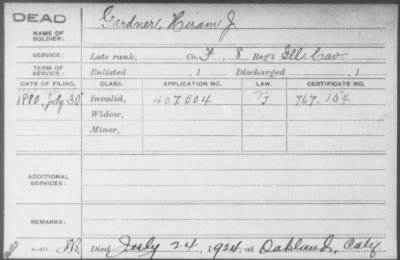 DEAD
NAME OF SOLDIER: Gardner, Hiram J.
SERVICE: Late rank, Co. F, 8 Reg't Ill. Cav.
TERM OF SERVICE: Enlisted , 1 Discharged , 1
DATE OF FILING. CLASS. APPLICATION NO. LAW. CERTIFICATE NO.
1890, July 30 Invalid, 407.504 J 767.154
Widow,
Minor,
ADDITIONAL SERVICES:
REMARKS:
Died July 24, 1924, at Oakland, Calif